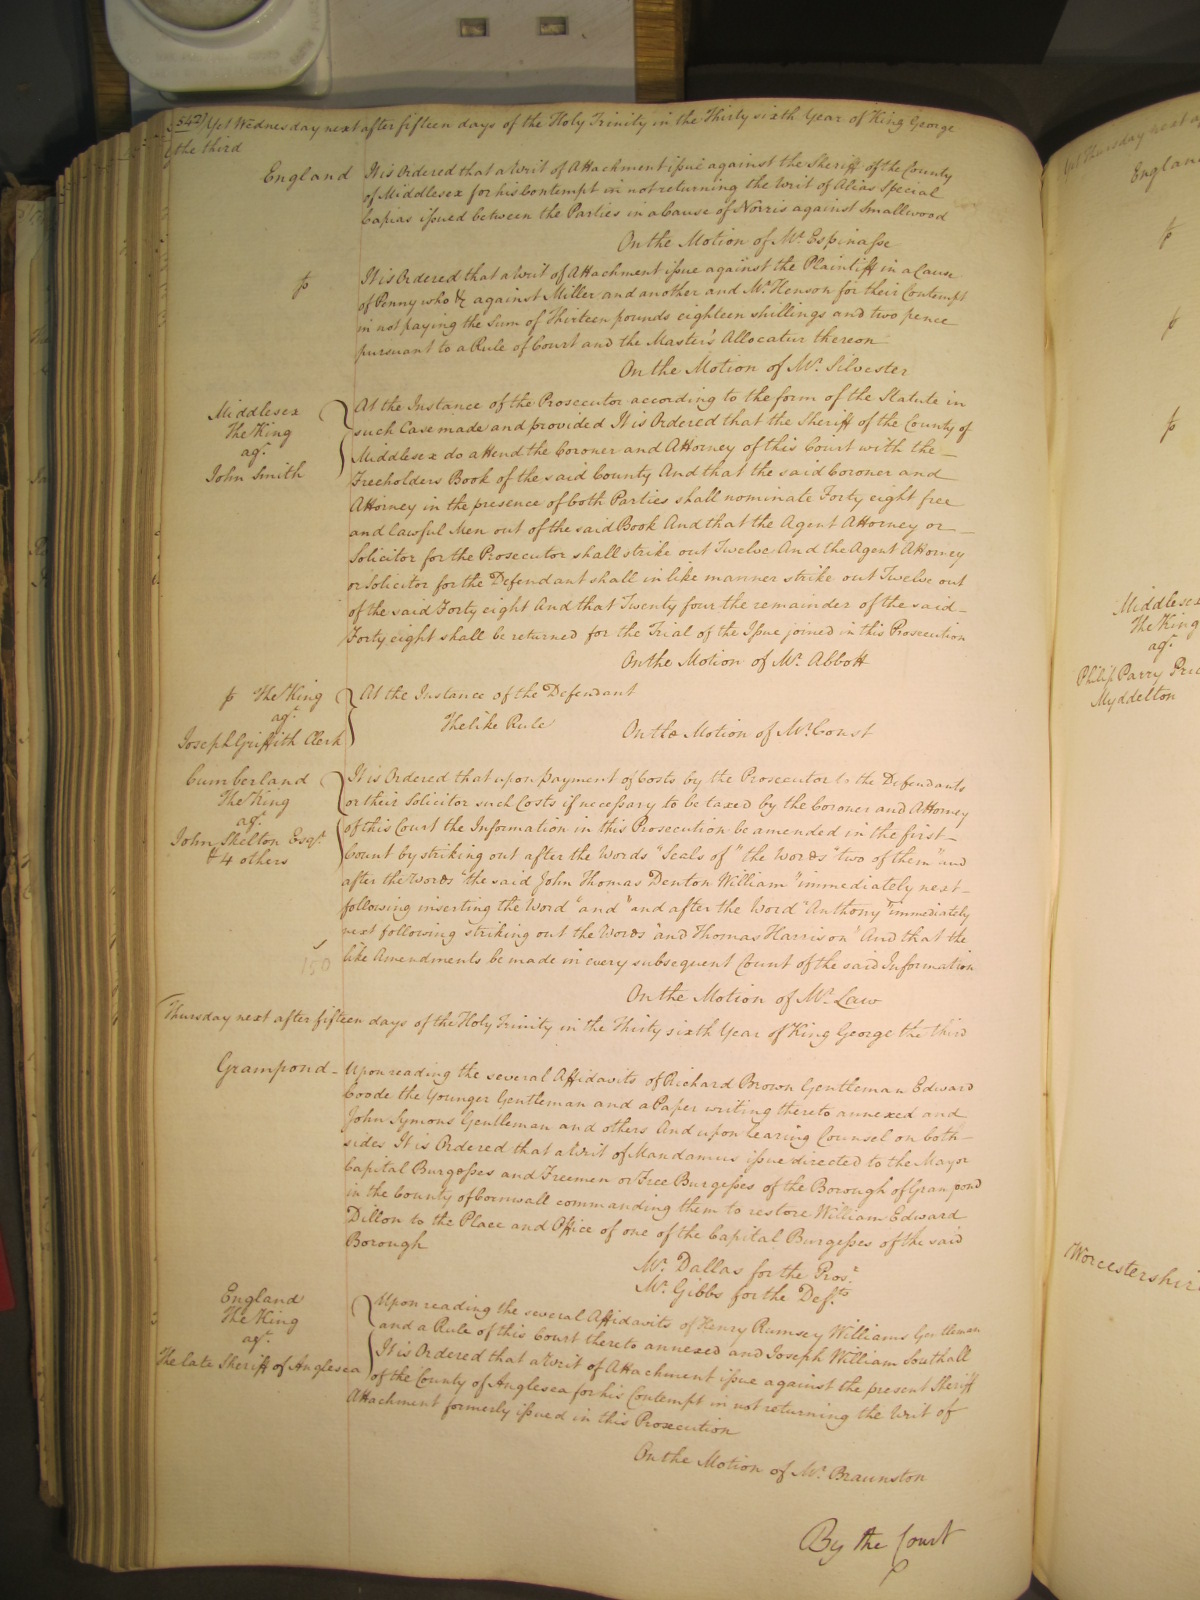 542) Yet Wednesday next after fifteen days of the Holy Trinity in the Thirty sixth Year of King George
the third
England It is Ordered that a Writ of Attachment issue against the Sheriff of the County
of Middlesex for his Contempt in not returning the Writ of Alias Special
Capias issued between the Parties in a Cause of Norris against Smallwood
On the Motion of Mr. Espinasse
It is Ordered that a Writ of Attachment issue against the Plaintiff in a Cause
of Penny who &c against Miller and another and Mr. Henson for their Contempt
in not paying the Sum of Thirteen pounds eighteen shillings and two pence
pursuant to a Rule of Court and the Master's Allocatur thereon
On the Motion of Mr. Silvester
Middlesex
The King
agt.
John Smith
At the Instance of the Prosecutor according to the form of the Statute in
such Case made and provided It is Ordered that the Sheriff of the County of
Middlesex do attend the Coroner and Attorney of this Court with the
Freeholders Book of the said County And that the said Coroner and
Attorney in the presence of both Parties shall nominate Forty eight free
and lawful Men out of the said Book And that the Agent Attorney or
Solicitor for the Prosecutor shall strike out Twelve And the Agent Attorney
or Solicitor for the Defendant shall in like manner strike out Twelve out
of the said Forty eight And that Twenty four the remainder of the said
Forty eight shall be returned for the Trial of the Issue joined in this Prosecution
On the Motion of Mr. Abbott
The King
agt.
Joseph Griffith Clerk
At the Instance of the Defendant
The like Rule On the Motion of Mr. Const
Cumberland
The King
agt.
John Skelton Esqr.
& 4 others
It is Ordered that upon payment of Costs by the Prosecutor to the Defendants
or their Solicitor such Costs if necessary to be taxed by the Coroner and Attorney
of this Court the Information in this Prosecution be amended in the first
Count by striking out after the Words "Seals of" the Words "two of them" and
after the Words "the said John Thomas Denton William" immediately next
following inserting the Word "and" and after the Word "Anthony" immediately
next following striking out the Words "and Thomas Harrison" And that the
like Amendments be made in every subsequent Count of the said Information
150
On the Motion of Mr. Law
Thursday next after fifteen days of the Holy Trinity in the Thirty sixth Year of King George the third
Grampond Upon reading the several Affidavits of Richard Brown Gentleman Edward
Coode the Younger Gentleman and a Paper writing thereto annexed and
John Symons Gentleman and others And upon hearing Counsel on both
sides It is Ordered that a Writ of Mandamus issue directed to the Mayor
Capital Burgesses and Freemen or Free Burgesses of the Borough of Grampond
in the County of Cornwall commanding them to restore William Edward
Dillon to the Place and Office of one of the Capital Burgesses of the said
Borough
Mr. Dallas for the Prosr.
Mr. Gibbs for the Defts.
England
The King
agt.
The late Sheriff of Anglesea
Upon reading the several Affidavits of Henry Rumsey Williams Gentleman
and a Rule of this Court thereto annexed and Joseph William Southall
It is Ordered that a Writ of Attachment issue against the present Sheriff
of the County of Anglesea for his Contempt in not returning the Writ of
Attachment formerly issued in this Prosecution
On the Motion of Mr. Braunston
By the Court
Thursday next
England
Middlesex
The King
agt.
Philip Parry
Myddelton
Worcestershire